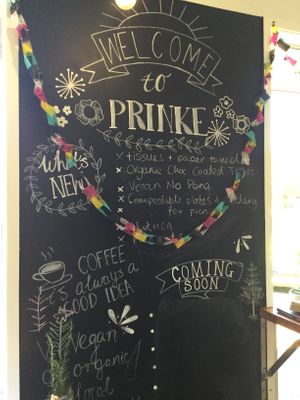 WELCOME
to
PRINKE
What's
NEW
x tissues + paper towel
x Organic Choc Coated
x Vegan No Pong
x Compostable plates +
for
COFFEE
it's always a
GOOD IDEA
COMING
SOON
Vegan
organic
local